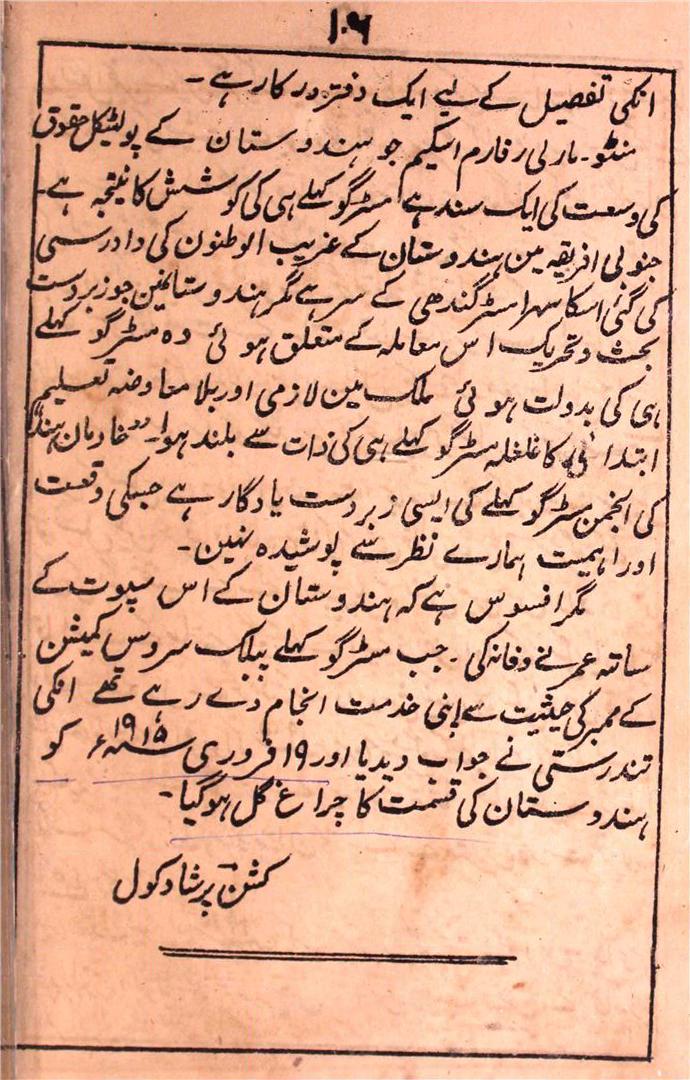 ۱۰۶
انکی تفصیل کے لیے ایک دفتر درکار ہے۔
منٹو۔ مارلی رفارم اسکیم جو ہندوستان کے پولٹیکل حقوق
کی وسعت کی ایک سند ہے مسٹر گوکہلے ہی کی کوشش کا نتیجہ ہے۔
جنوبی افریقہ مین ہندوستان کے غریب الوطنون کی دادرسی
کی گئی اسکا سہرا مسٹر گندھی کے سر ہے مگر ہندوستانمین جو زبردست
بحث و تحریک اس معاملہ کے متعلق ہوئی وہ مسٹر گوکہلے
ہی کی بدولت ہوئی ملک مین لازمی اور بلا معاوضہ تعلیم
ابتدائی کا غلغلہ مسٹر گوکہلے ہی کی ذات سے بلند ہوا۔ "خادمان ہند"
کی انجمن مسٹر گوکہلے کی ایسی زبردست یادگار ہے جسکی وقعت
اور اہمیت ہمارے نظر سے پوشیدہ نہین۔
مگر افسوس ہے کہ ہندوستان کے اس سپوت کے
ساتہ عمر نے وفا نہ کی۔ جب مسٹر گوکہلے پبلک سروس کمیشن
کے ممبر کی حیثیت سے اپنی خدمت انجام دے رہے تھے انکی
تندرستی نے جواب دیدیا اور ۱۹ فروری سنہ ۱۹۱۵ء کو
ہندوستان کی قسمت کا چراغ گل ہوگیا۔
کشن پرشاد کول